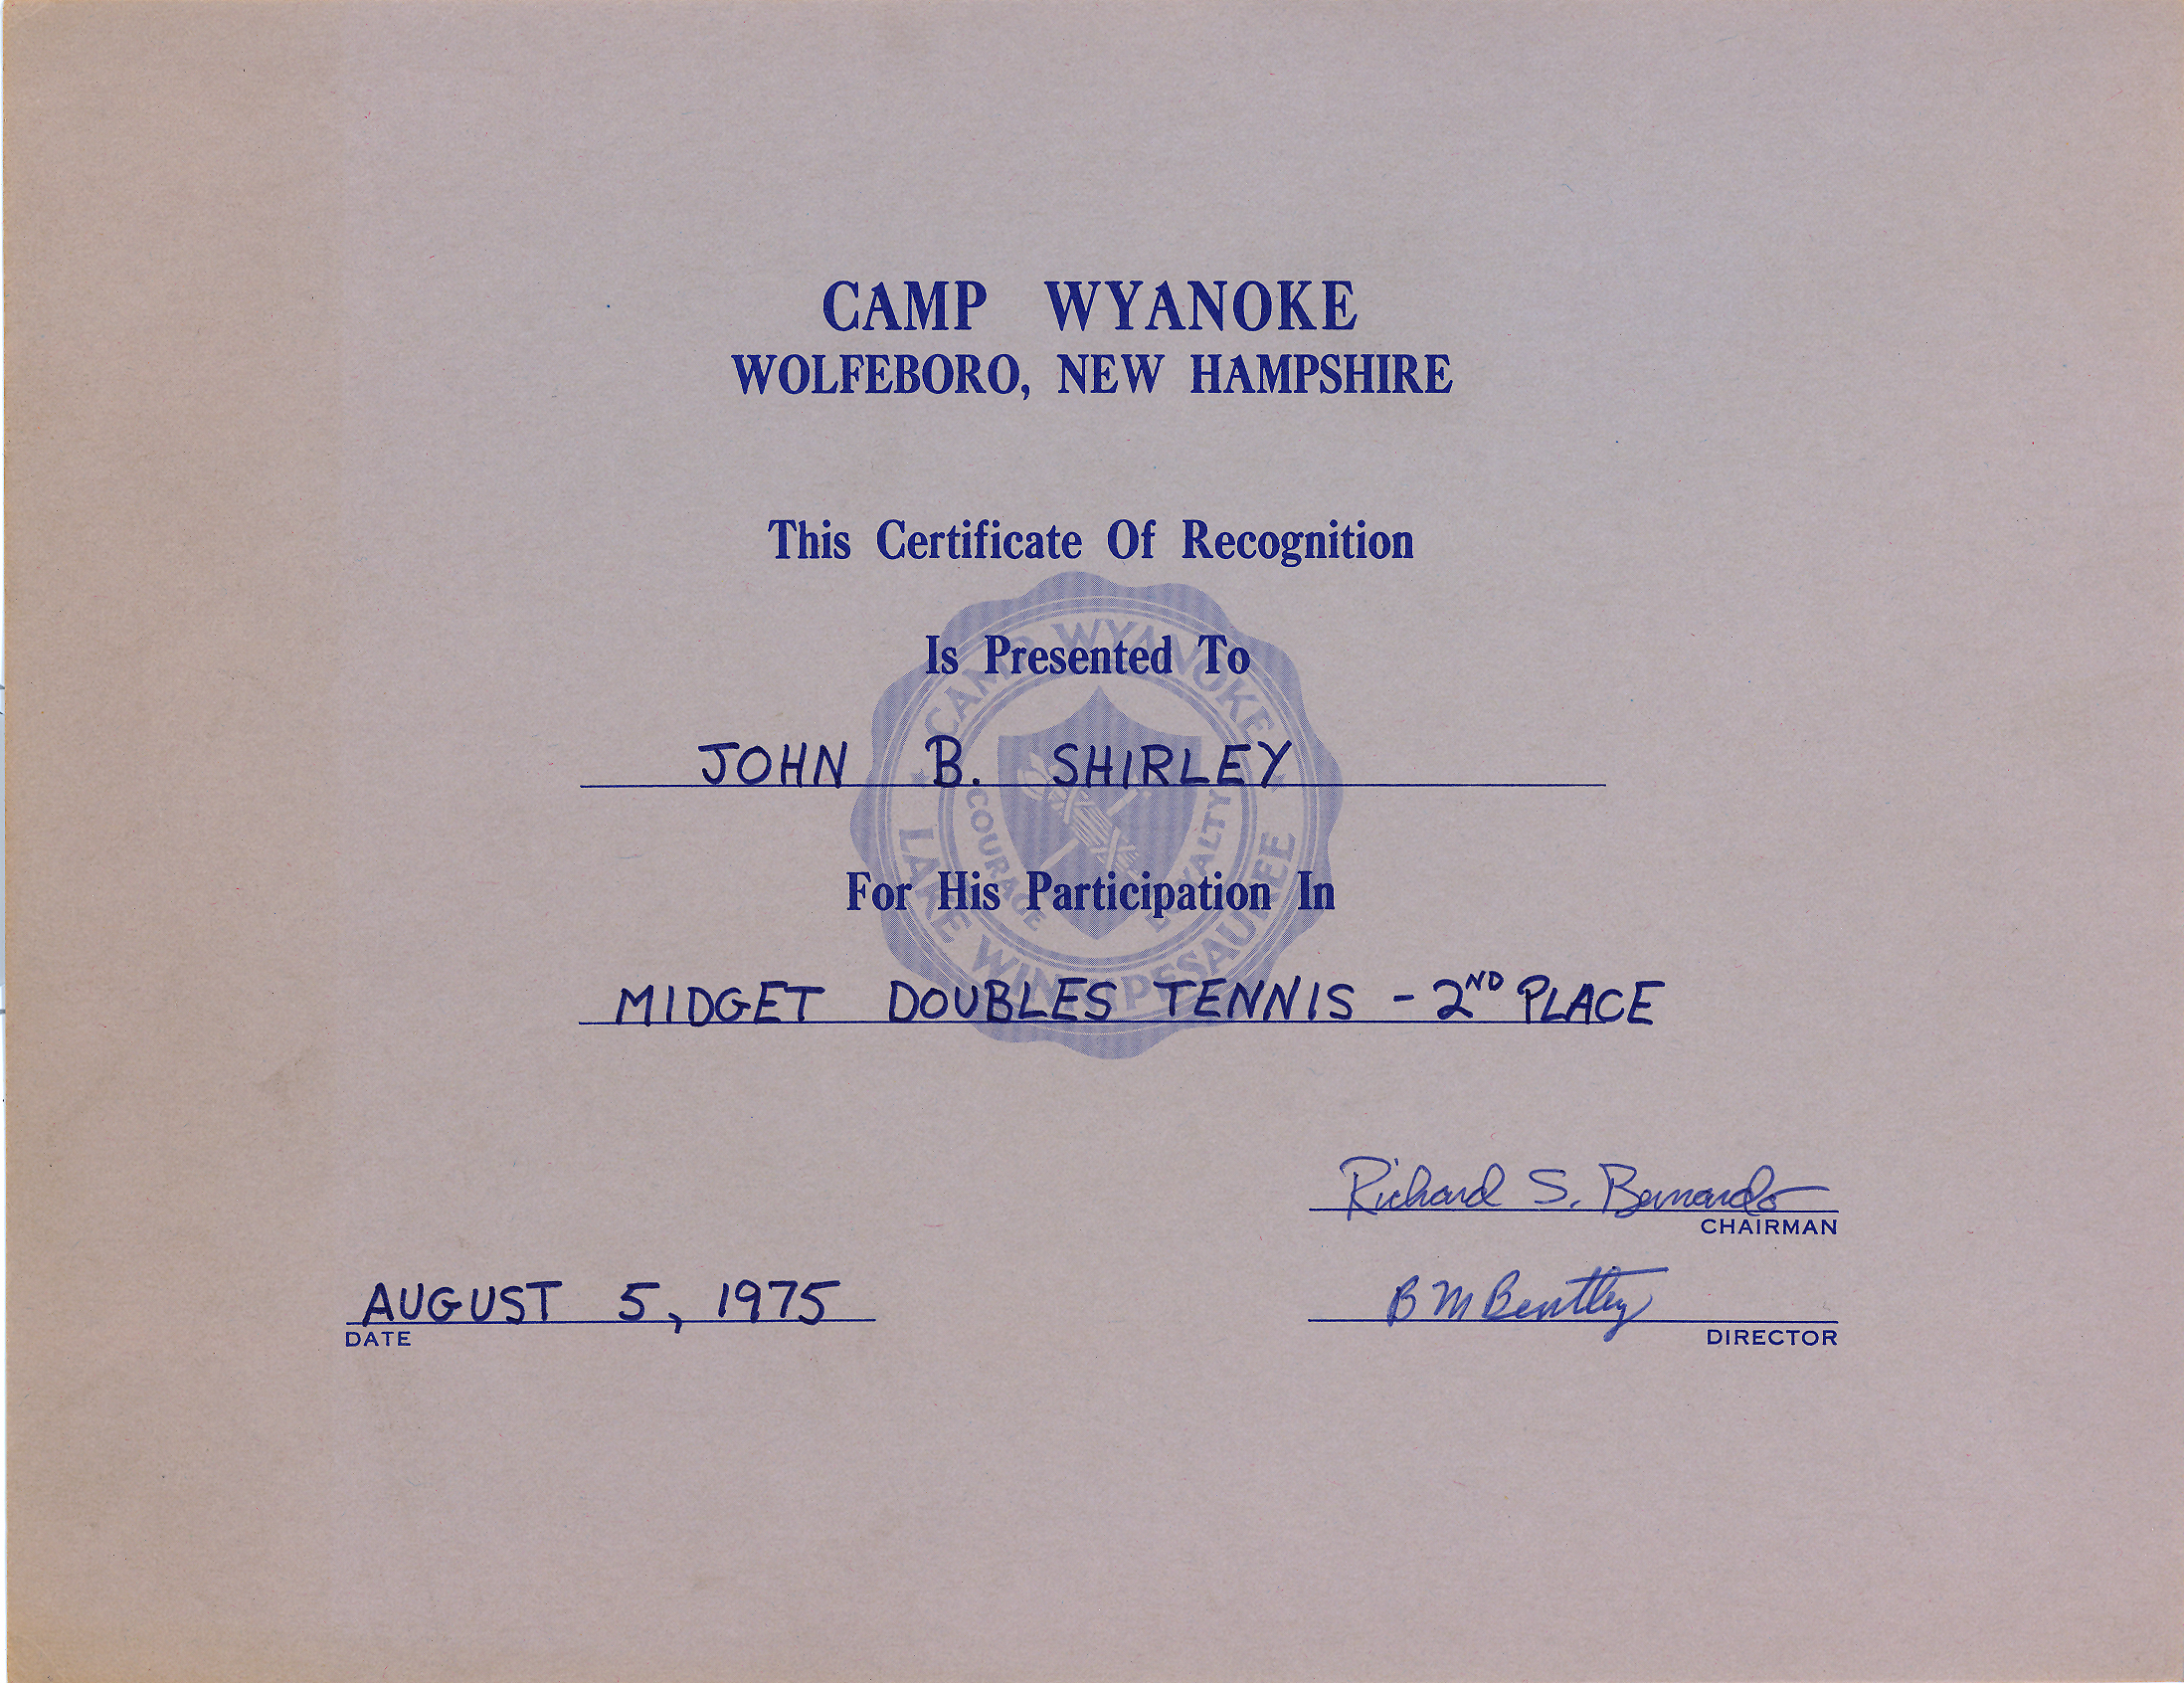 CAMP WYANOKE
WOLFEBORO, NEW HAMPSHIRE
This Certificate Of Recognition
Is Presented To
CAMP WYANOKE
JOHN B. SHIRLEY
COURAGE
LOYALTY
For His Participation In
LAKE WINNIPESAUKEE
MIDGET DOUBLES TENNIS - 2ND PLACE
Richard S. Bernardo
CHAIRMAN
AUGUST 5, 1975
DATE
B M Bentley
DIRECTOR